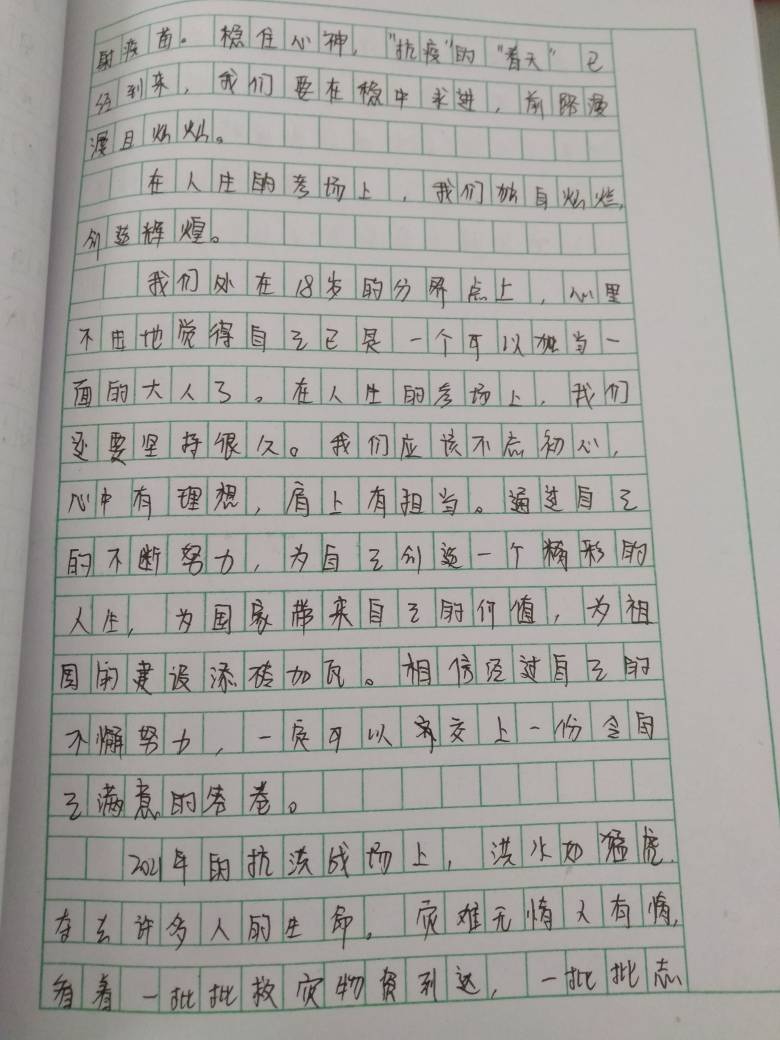 射疫苗。稳住心神，"抗疫"的"春天"已
经到来，我们要在稳中求进，前路漫
漫且灿灿。
在人生的考场上，我们独自灿烂，
创造辉煌。
我们处在18岁的分界点上，心里
不由地觉得自己已是一个可以独当一
面的大人了。在人生的考场上，我们
还要坚持很久。我们应该不忘初心，
心中有理想，肩上有担当。通过自己
的不断努力，为自己创造一个精彩的
人生，为国家带来自己的价值，为祖
国的建设添砖加瓦。相信经过自己的
不懈努力，一定可以交上一份令自
己满意的答卷。
2021年的抗洪战场上，洪水如猛虎，
夺去许多人的生命。灾难无情人有情，
看着一批批救灾物资到达，一批批志